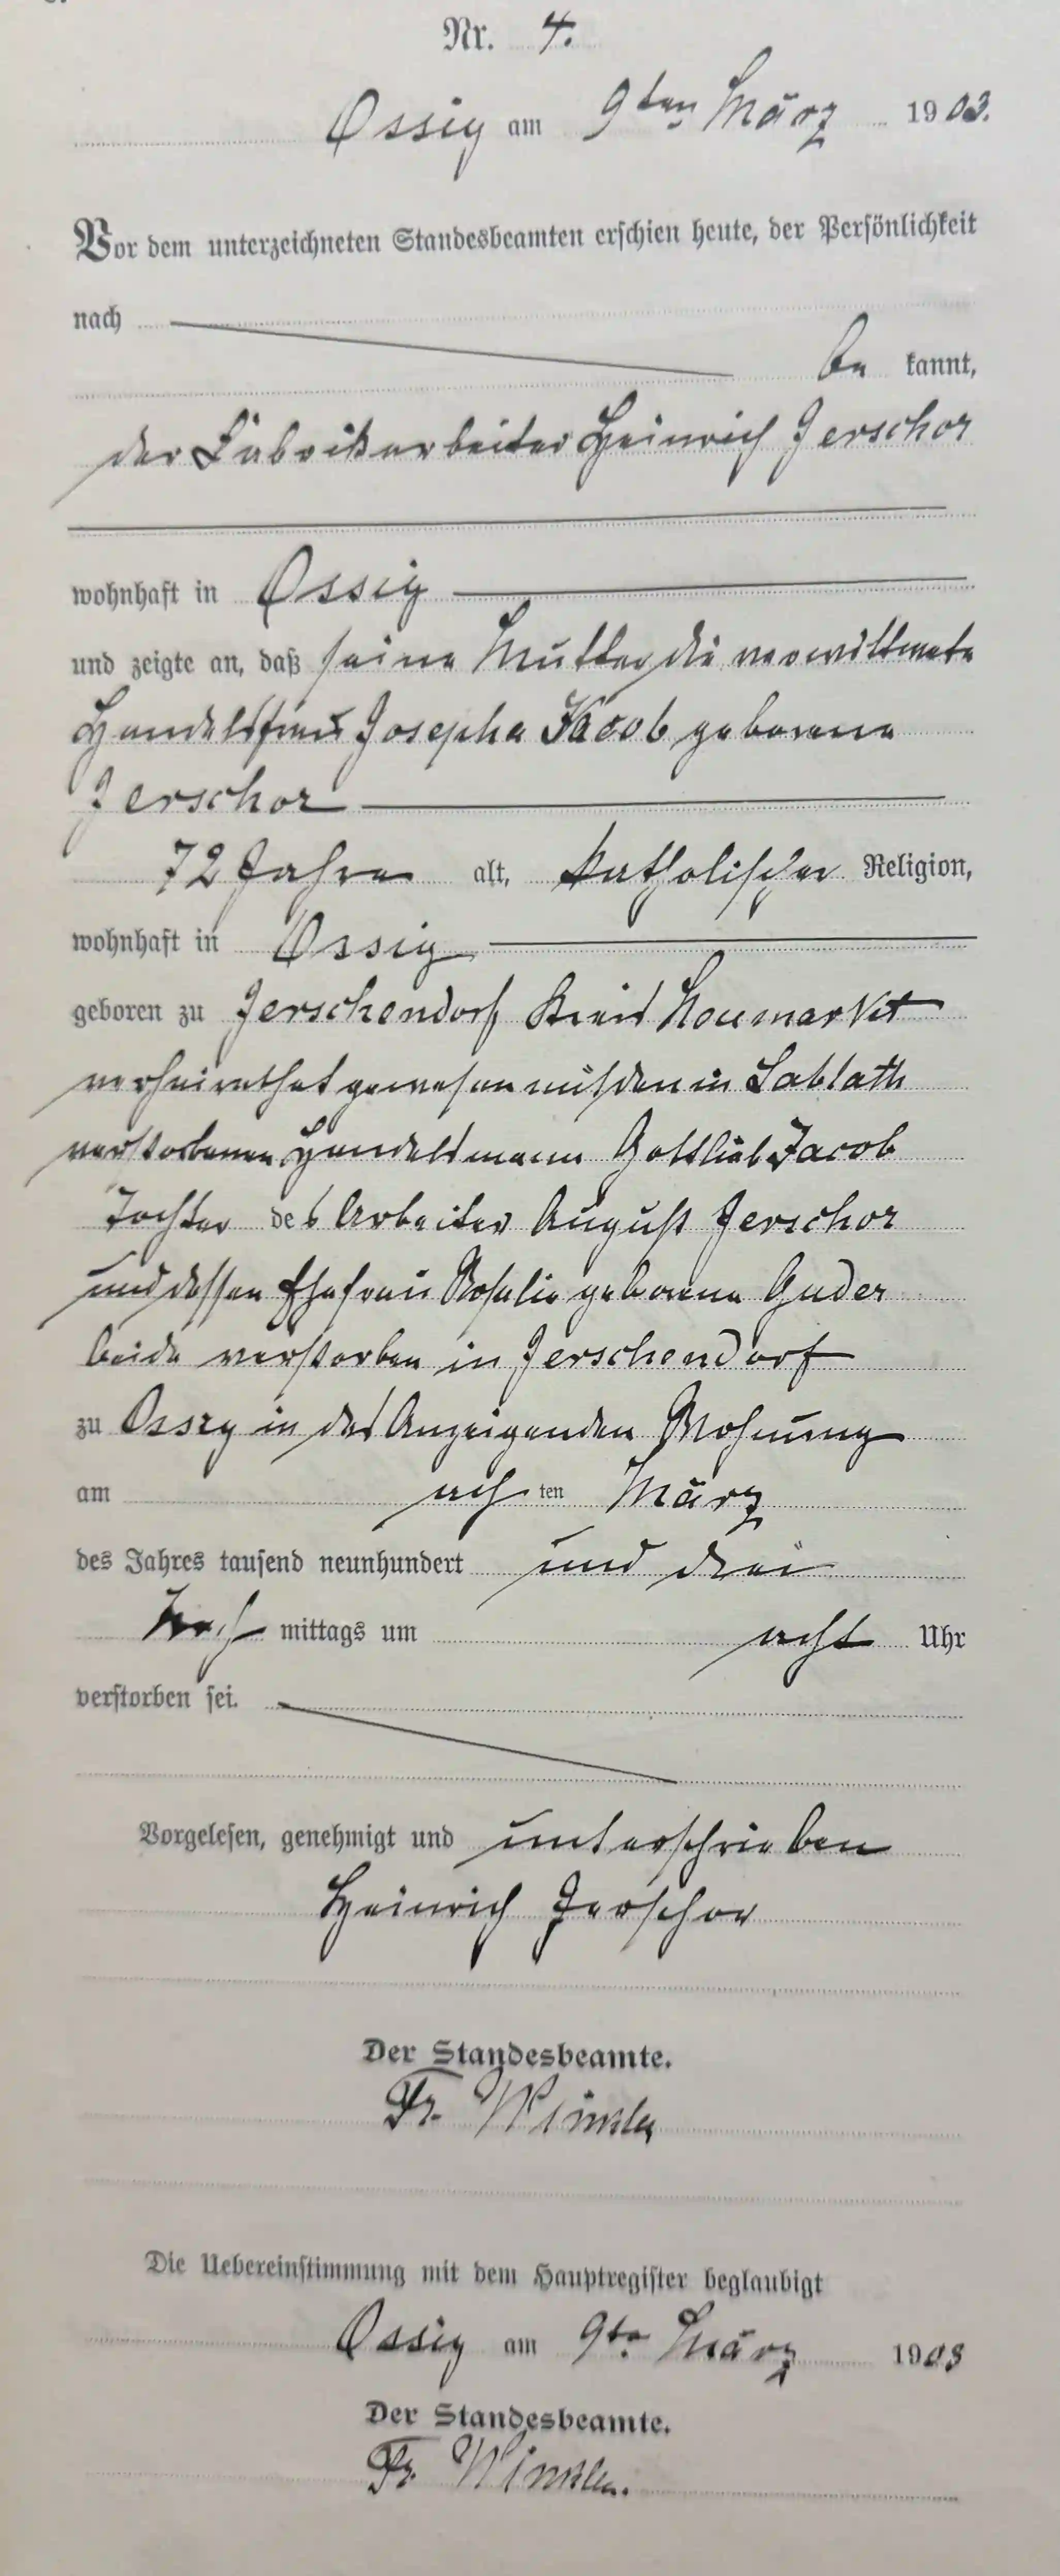 Nr. 4.
Ossig am 9ten März 1903.
Vor dem unterzeichneten Standesbeamten erschien heute, der Persönlichkeit
nach
be kannt,
der Fabrikarbeiter Heinrich Jerschor
wohnhaft in Ossig
und zeigte an, daß seine Mutter die verwittwete
Handelsfrau Josepha Jacob geborene
Jerschor
72 Jahre alt, katholischer Religion,
wohnhaft in Ossig
geboren zu Jerschendorf Kreis Neumarkt
verheirathet gewesen mit den in Sablath
verstorbenen Handelsmann Gottlieb Jacob
Tochter des Arbeiter August Jerschor
und dessen Ehefrau Rosalie geborene Guder
beide verstorben in Jerschendorf
zu Ossig in des Anzeigenden Wohnung
am achten März
des Jahres tausend neunhundert und drei
Nach mittags um acht Uhr
verstorben sei.
Vorgelesen, genehmigt und unterschrieben
Heinrich Jerschor
Der Standesbeamte.
Fr. Winkler
Die Uebereinstimmung mit dem Hauptregister beglaubigt
Ossig am 9te März 1903
Der Standesbeamte.
Fr. Winkler.